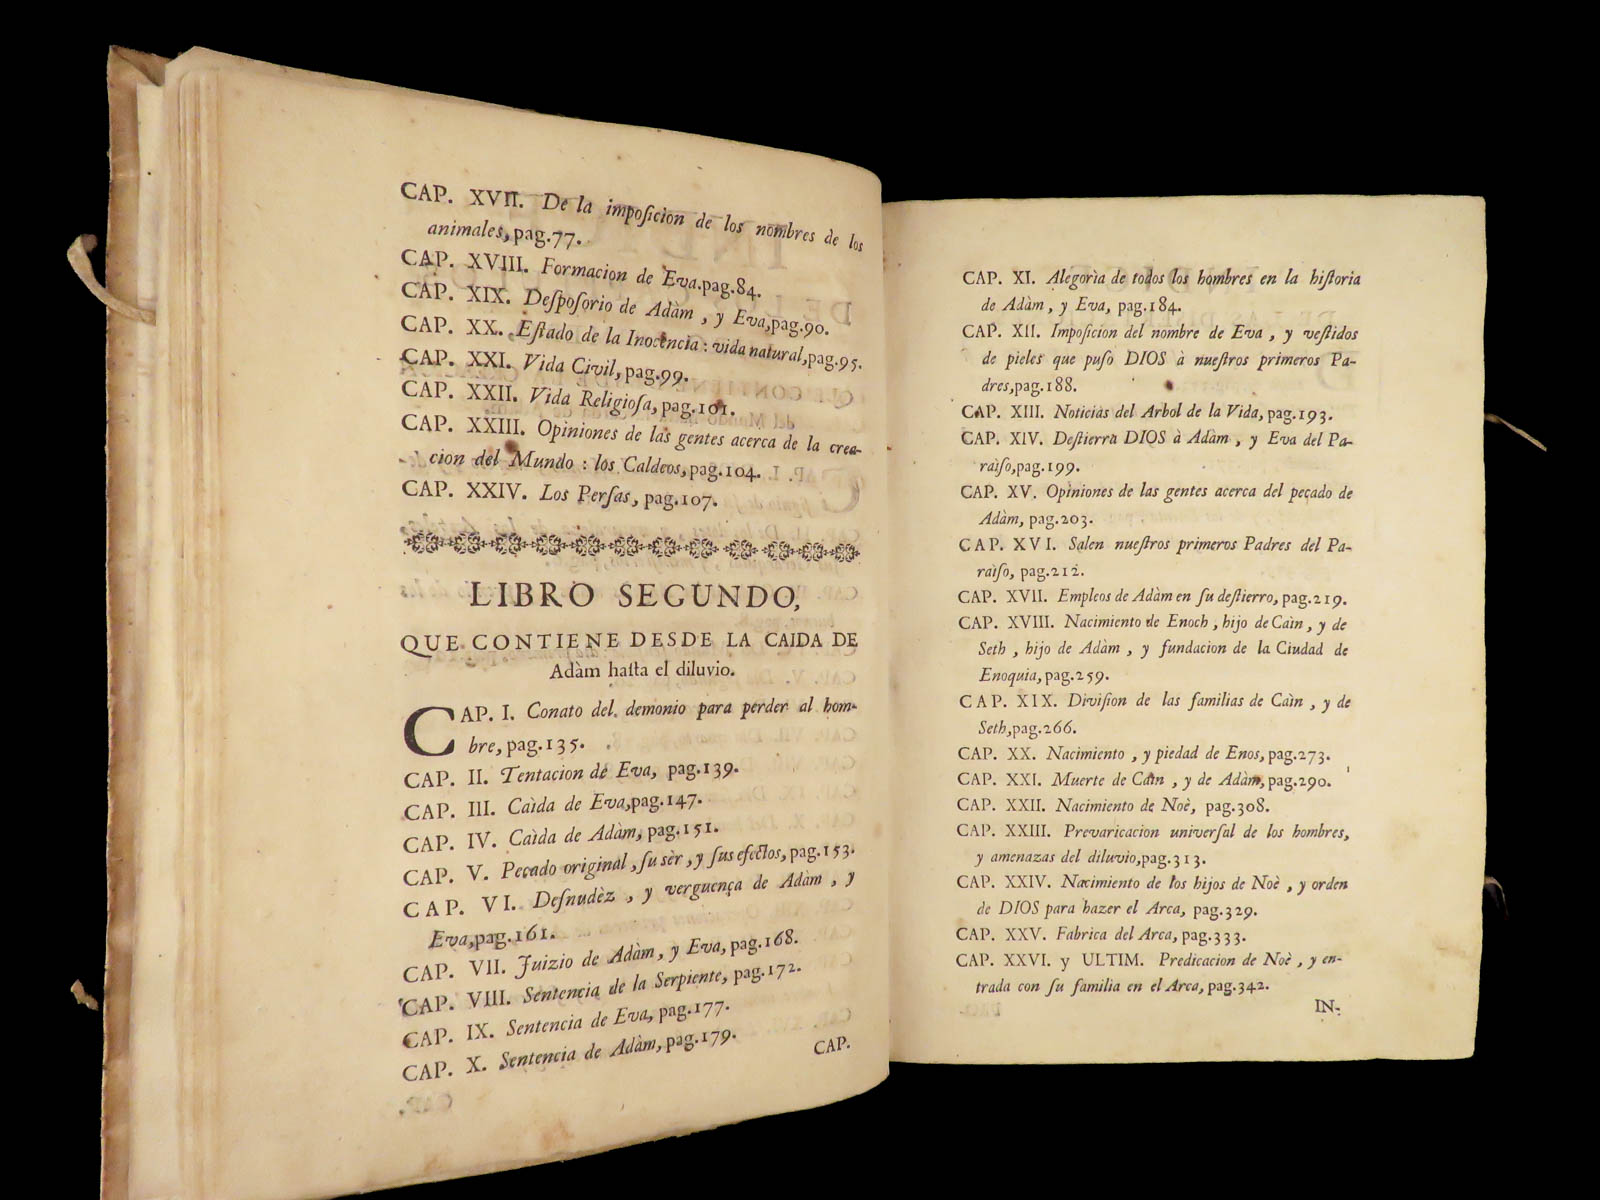 CAP. XVII. De la impoſicion de los nombres de los
animales, pag.77.
CAP. XVIII. Formacion de Eva.pag.84.
CAP. XIX. Deſpoſorio de Adàm, y Eva,pag.90.
CAP. XX. Eſtado de la Inocencia: vida natural,pag.95.
CAP. XXI. Vida Civil, pag.99.
CAP. XXII. Vida Religioſa, pag.101.
CAP. XXIII. Opiniones de las gentes acerca de la crea-
cion del Mundo: los Caldeos, pag.104.
CAP. XXIV. Los Perſas, pag.107.
LIBRO SEGUNDO,
QUE CONTIENE DESDE LA CAIDA DE
Adàm haſta el diluvio.
CAP. I. Conato del demonio para perder al hom-
bre, pag.135.
CAP. II. Tentacion de Eva, pag.139.
CAP. III. Caìda de Eva,pag.147.
CAP. IV. Caìda de Adàm, pag.151.
CAP. V. Peçado original, ſu sèr, y ſus efectos, pag.153.
CAP. VI. Deſnudèz, y verguença de Adàm, y
Eva,pag.161.
CAP. VII. Juizio de Adàm, y Eva, pag.168.
CAP. VIII. Sentencia de la Serpiente, pag.172.
CAP. IX. Sentencia de Eva, pag.177.
CAP. X. Sentencia de Adàm, pag.179.
CAP.
CAP. XI. Alegorìa de todos los hombres en la hiſtoria
de Adàm, y Eva, pag.184.
CAP. XII. Impoſicion del nombre de Eva, y veſtidos
de pieles que puſo DIOS à nueſtros primeros Pa-
dres,pag.188.
CAP. XIII. Noticias del Arbol de la Vida, pag.193.
CAP. XIV. Deſtierra DIOS à Adàm, y Eva del Pa-
raìſo,pag.199.
CAP. XV. Opiniones de las gentes acerca del peçado de
Adàm, pag.203.
CAP. XVI. Salen nueſtros primeros Padres del Pa-
raìſo, pag.212.
CAP. XVII. Empleos de Adàm en ſu deſtierro, pag.219.
CAP. XVIII. Nacimiento de Enoch, hijo de Caìn, y de
Seth, hijo de Adàm, y fundacion de la Ciudad de
Enoquia, pag.259.
CAP. XIX. Diviſion de las familias de Caìn, y de
Seth,pag.266.
CAP. XX. Nacimiento, y piedad de Enos, pag.273.
CAP. XXI. Muerte de Caìn, y de Adàm, pag.290.
CAP. XXII. Nacimiento de Noè, pag.308.
CAP. XXIII. Prevaricacion univerſal de los hombres,
y amenazas del diluvio,pag.313.
CAP. XXIV. Nacimiento de los hijos de Noè, y orden
de DIOS para hazer el Arca, pag.329.
CAP. XXV. Fabrica del Arca, pag.333.
CAP. XXVI. y ULTIM. Predicacion de Noè, y en-
trada con ſu familia en el Arca, pag.342.
IN-